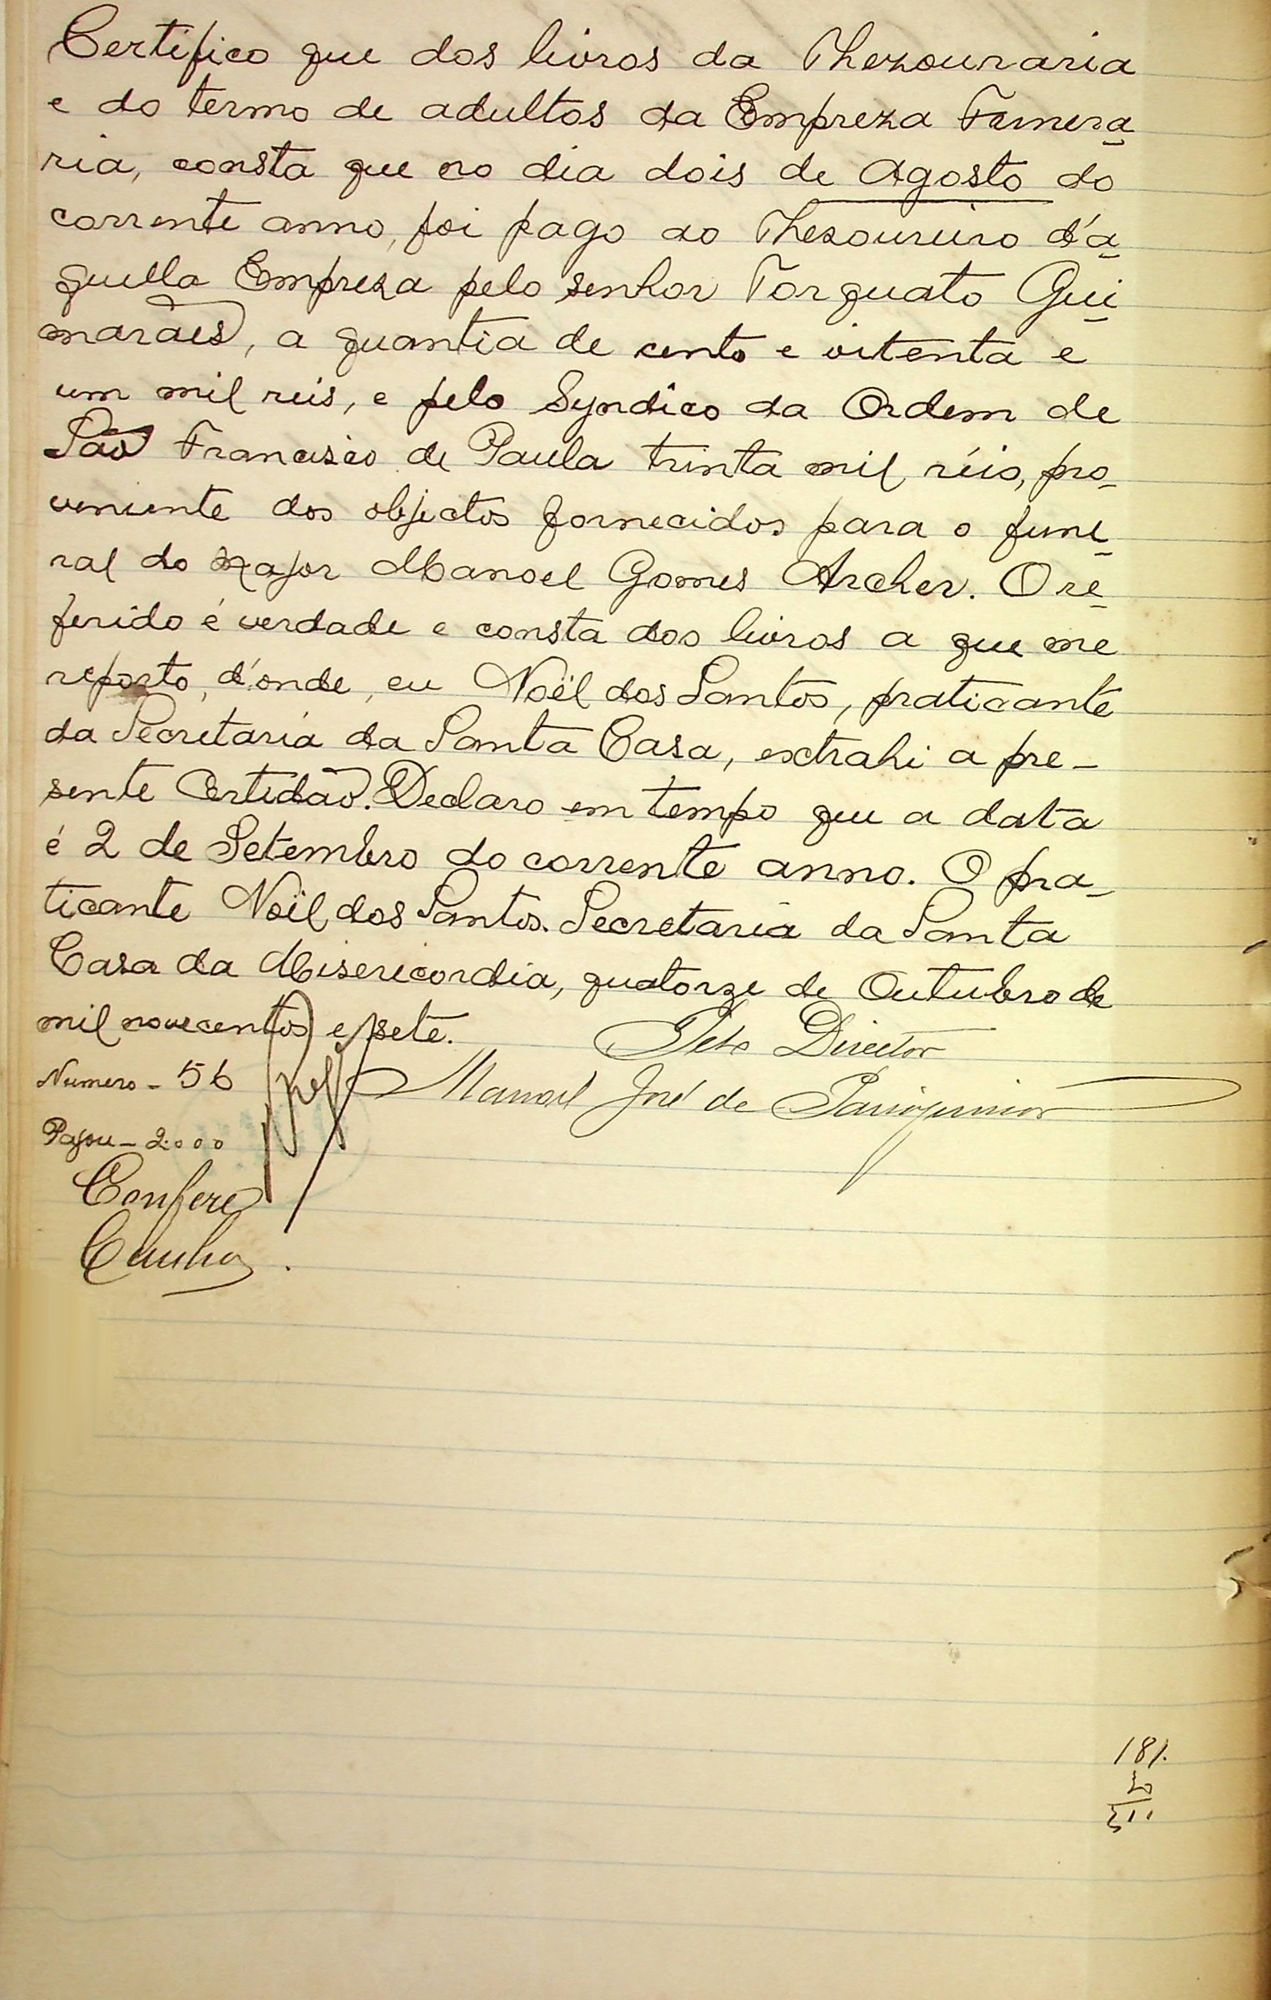 Certifico que dos livros da Thezouraria
e do termo de adultos da Empreza Funera
ria, consta que no dia dois de Agosto do
corrente anno, foi pago ao Thesoureiro d'a
quella Empreza pelo senhor Torquato Gui
marães, a quantia de cento e oitenta e
um mil reis, e pelo Syndico da Ordem de
São Francisco de Paula trinta mil réis, pro_
veniente dos objectos fornecidos para o fune_
ral do Major Manoel Gomes Archer. O re_
ferido é verdade e consta dos livros a que me
reporto, d'onde, eu Noël dos Santos, praticante
da Secretaria da Santa Casa, extrahi a pre_
sente Certidão. Declaro em tempo que a data
é 2 de Setembro do corrente anno. O pra_
ticante Noël dos Santos. Secretaria da Santa
Casa da Misericordia, quatorze de Outubro de
mil novecentos e sete.
Pelo Director
Numero - 56
Manoel José de
Pagou - 2000
Confere
Cunha.
181.
30
211